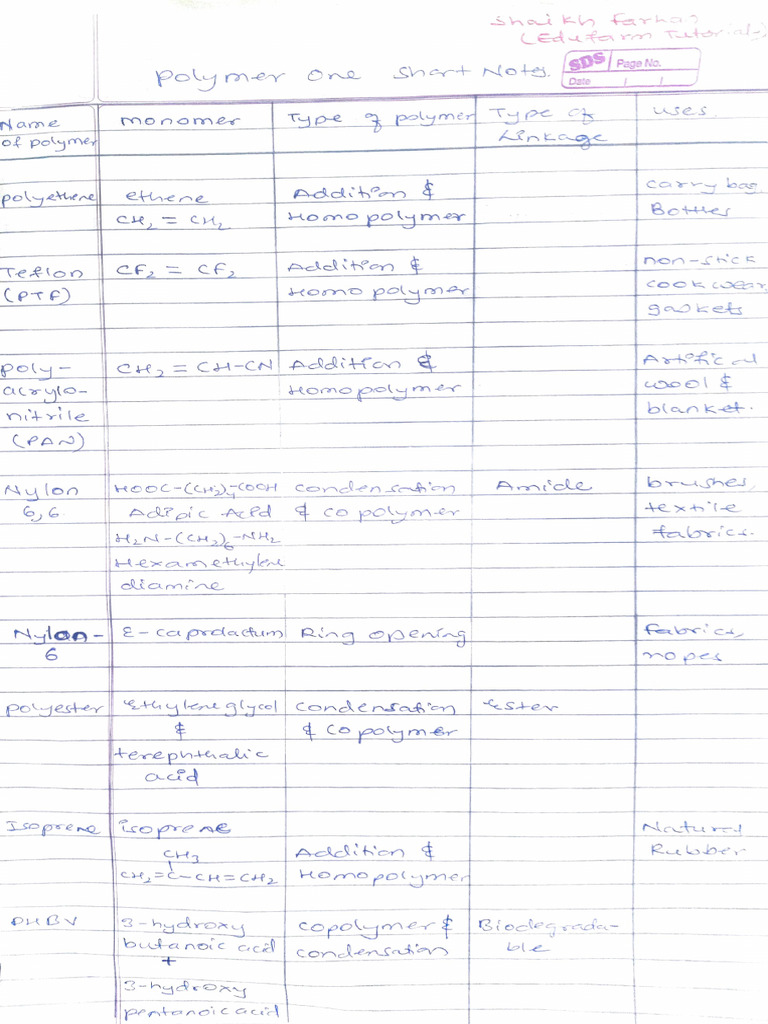 Shaikh Farhan
(Edufarm Tutorials)
SDS Page No.
Date / /
Polymer One Shart Notes.
Name of polymer monomer Type of polymer Type of Linkage uses.
polyethene ethene Addition & carry bag
CH2 = CH2 Homopolymer Bottles
Teflon CF2 = CF2 Addition & non-stick
(PTF) Homopolymer cookwear
gaskets
poly- CH2 = CH-CN Addition & Artifical
acrylo- Homopolymer wool &
nitrile blanket.
(PAN)
Nylon HOOC-(CH2)4-COOH condensation Amide brushes,
6,6 Adipic Acid & copolymer textile
H2N-(CH2)6-NH2 fabrics.
Hexamethylene
diamine
Nylon- ε-caprolactum Ring opening fabrics,
6 ropes
polyester Ethylene glycol condensation Ester
& & copolymer
terephthalic
acid
Isoprene isoprene Natural
CH3 Addition & Rubber
CH2=C-CH=CH2 Homopolymer
PHBV 3-hydroxy copolymer & Biodegrada-
butanoic acid condensation ble
+
3-hydroxy
pentanoic acid